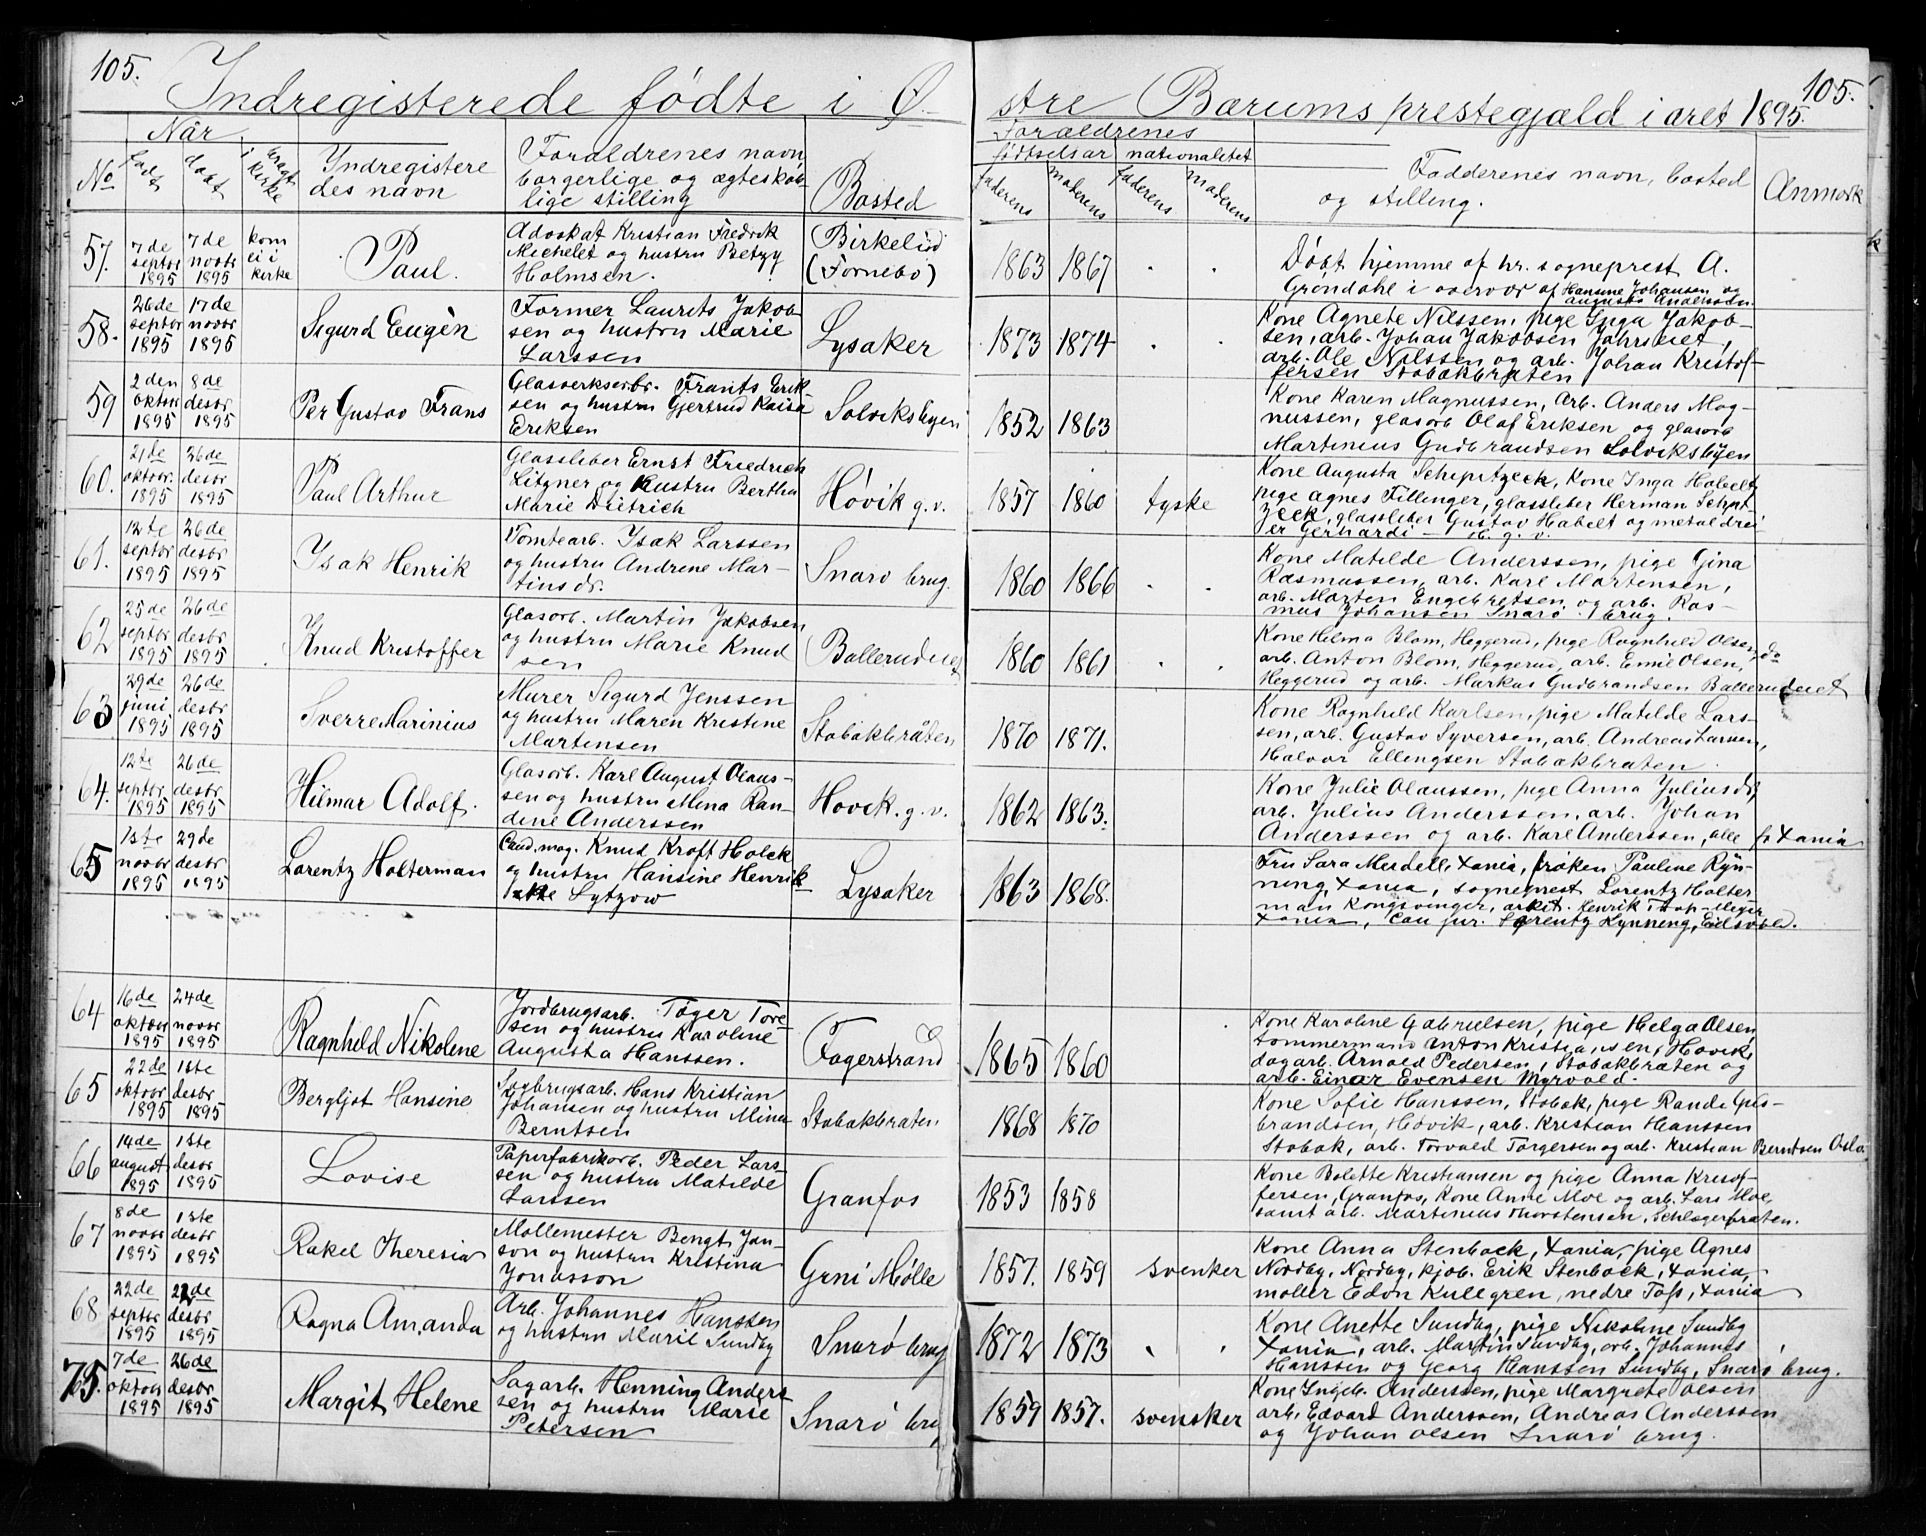 105.
105.
Indregisterede fødte i Ø
stre Bærums prestegjæld i året 1895.
Når
Forældrenes
fødselsår nationalitet
No
født
døbt
i kirke
Yndregistere
des navn
Forældrenes navn
borgerlige og ægteskab
lige stilling
Bosted
faderens
moderens
faderens
moderens
Fadderenes navn, bosted
og stilling.
Anmerk
57.
7de
septbr
1895
7de
novbr
1895
kom
ei i
kirke
Paul.
Advokat Kristian Fredrik
Michelet og hustru Betzy
Holmsen.
Birkelid
(Fornebo)
1863 1867
Døbt hjemme af hr. sogneprest A.
Grøndahl i overvær af Hansine Johansen og
Augusta Anderssdn.
58.
26de
septbr
1895
17de
novbr
1895
Sigurd Eugèn
Former Laurits Jakob
sen og hustru Marie
Larssen
Lysaker
1873 1874
Kone Agnete Nilssen, pige Inga Jakob-
sen, arb. Johan Jakobsen Jahrseiet,
arb. Ole Nilssen og arb. Johan Kristof-
fersen Stabækbråten
59
2den
oktbr
1895
8de
desbr
1895
Per Gustav Frans
Glasverksarb. Frants Erik-
sen og hustru Gjertrud Kaisa
Eriksen
Solviksbyen
1852 1863
Kone Karen Magnussen, Arb. Anders Mag-
nussen, glasarb Olaf Eriksen og glasarb
Martinius Gudbrandsen Solviksbyen
60.
21de
oktobr.
1895
26de
desbr
1895
Paul Arthur
Glassliber Ernst Friedrich
Litzner og hustru Bertha
Marie Dietrich
Høvik g. v.
1857 1860 tyske
Kone Augusta Schipitzeck, Kone Inga Habelt
pige Agnes Fillinger, glassliber Herman Schpit-
zeck, glassliber Gustav Habelt og metaldrei
er Gerhardi — H. g. v.
61.
12te
septbr
1895
26de
desbr
1895
Ysak Henrik
Tomtearb. Ysak Larssen
og hustru Andrine Mar-
tinsdr.
Snarø brug.
1860 1866
Kone Matilde Anderssen, pige Gina
Rasmussen, arb. Karl Martensen,
arb. Morten Engebretsen og arb. Ras-
mus Johansen Snarø brug.
62
25de
septbr
1895
26de
desbr
1895
Knud Kristoffer
Glasarb. Martin Jakobsen
og hustru Marie Knud
sen
Ballerudeiet
1860 1861
Kone Helma Blom, Heggerud, pige Ragnhild Olsen, do
arb. Anton Blom, Heggerud, arb. Emil Olsen,
Heggerud og arb. Markus Gudbrandsen Ballerudeiet
63
29de
juni
1895
26de
desbr
1895
Sverre Marinius
Murer Sigurd Jenssen
og hustru Maren Kristine
Martensen
Stabækbråten
1870 1871.
Kone Ragnhild Karlsen, pige Matilde Lars-
sen, arb. Gustav Syversen, arb. Andreas Larssen,
Halvor Ellengsen Stabækbråten.
64.
12te
septbr
1895
26de
desbr
1895
Hilmar Adolf.
Glasarb. Karl August Olaus-
sen og hustru Mina Ran-
dine Anderssen
Høvik. g. v.
1862 1863.
Kone Julie Olaussen, pige Anna Juliusdr,
arb. Julius Anderssen, arb. Johan
Anderssen og arb. Karl Anderssen, alle fr Xania
65
1ste
novbr
1895
29de
desbr
1895
Lorentz Holterman
Cand. mag. Knud Kroft Holck
og hustru Hansine Henrik-
Lytzow
Lysaker
1863 1868.
Fru Sara Merdell, Xania, frøken Pauline Ryn-
ning, Xania, sogneprest Lorentz Holter-
man Kongsvinger, arkit. Henrik Thap-Meyer
Xania, Can jur. Lorentz Rynning, Eidsvold.
64
16de
oktobr
1895
24de
novbr
1895
Ragnhild Nikoline
Jordbrugsarb. Tøger Tore-
sen og hustru Karoline
Augusta Hanssen.
Fagerstrand
1865 1860
Kone Karoline Gabrielsen, pige Helga Olsen,
tømmermand Anton Kristiansen, Høvik,
dagarb. Arnold Pedersen, Stabækbråten og
arb. Einar Evensen Myrvold.
65
22de
oktobr
1895
1ste
desbr
1895
Bergljot Hansine
Sagbrugsarb. Hans Kristian
Johansen og hustru Mina
Berntsen
Stabækbråten
1868 1870
Kone Sofie Hanssen, Stabæk, pige Randi Gul-
brandsen, Høvik, arb. Kristian Hanssen
Stabæk, arb. Torvald Torgersen og arb. Kristian Berntsen Oslo.
66
14de
august
1895
1ste
desbr
1895
Lovise
Papirfabrikarb. Peder Lars-
sen og hustru Matilde
Larssen
Granfos
1853 1858
Kone Bolette Kristiansen og pige Anna Kristof-
fersen, Granfos, Kone Anne Moe og arb. Lars Moe,
samt arb. Martinius Thorstensen, Schlægerbråten.
67
8de
novbr
1895
1ste
desbr
1895
Rakel Theresia
Møllemester Bengt Jon-
son og hustru Kristina
Jonasson
Grini Mølle
1857. 1859 svenker
Kone Anna Stenbock, Xania, pige Agnes
Nordby, Nordby, kjøb. Erik Stenbock, Xania,
møller Edvin Kullgren, nedre Foss, Xania
68
22de
septbr
1895
22de
desbr
1895
Ragna Amanda
Arb. Johannes Hanssen
og hustru Marie Sundby
Snarø brug
1872 1873
Kone Anette Sundby, pige Nikoline Sundby
Xania, arb. Martin Sundby, arb. Johannes
Hanssen og Georg Hanssen Sundby, Snarø brug.
75.
7de
oktbr
1895
26de
desbr
1895
Margit Helene
Sagarb. Henning Anders-
sen og hustru Marie
Petersen
Snarø brug
1859 1857. svensker
Kone Ingeb. Anderssen, pige Margrete Olsen
arb. Edvard Anderssen, Andreas Anderssen
og Johan Olsen Snarø brug.